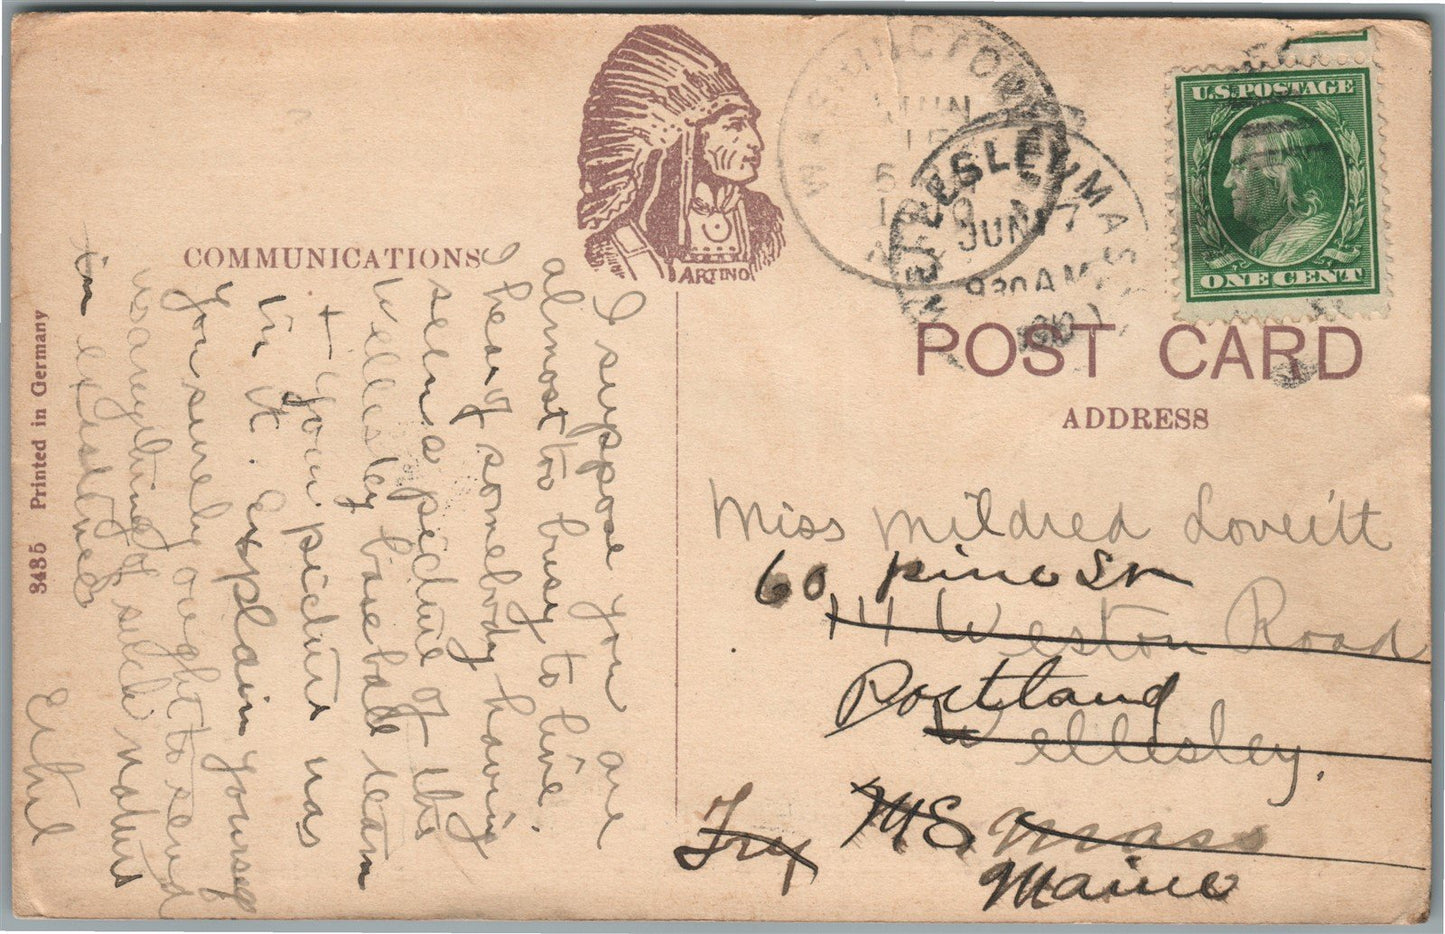 COMMUNICATIONS
I suppose you are
almost too busy to live.
I heard somebody having
seen a picture of the
Wellesley base ball team
+ your picture was
in it. Explain yourself
you surely ought to send
us anything of such nature
in existence
Ethel
3435 Printed in Germany
ARTINO
WASHINGTON
JUN
15
WELLESLEY MASS.
JUN 17
930 AM
1910
U.S. POSTAGE
ONE CENT
POST CARD
ADDRESS
Miss Mildred Loveitt
60 Pine St
14 Weston Road
Portland
Wellesley.
Try
ME
Mass
Maine